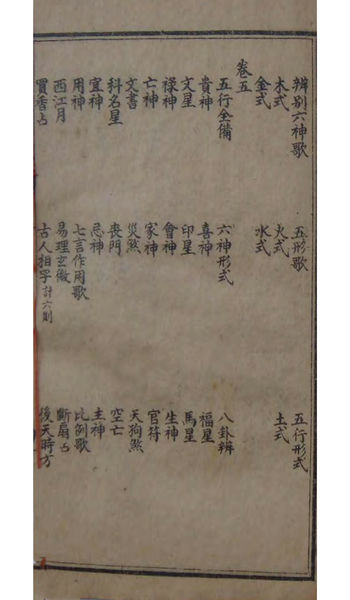 辨别六神歌 五形歌 五行形式
木式 火式 土式
金式 水式
卷五
五行全備 六神形式 八卦辨
貴神 喜神 福星
文星 印星 馬星
祿神 會神 生神
亡神 家神 官符
文書 災煞 天狗煞
科名星 喪門 空亡
宜神 忌神 主神
用神 七言作用歌 比例歌
西江月 易理玄微 斷扇占
買香占 古人相字計六則 後天時方